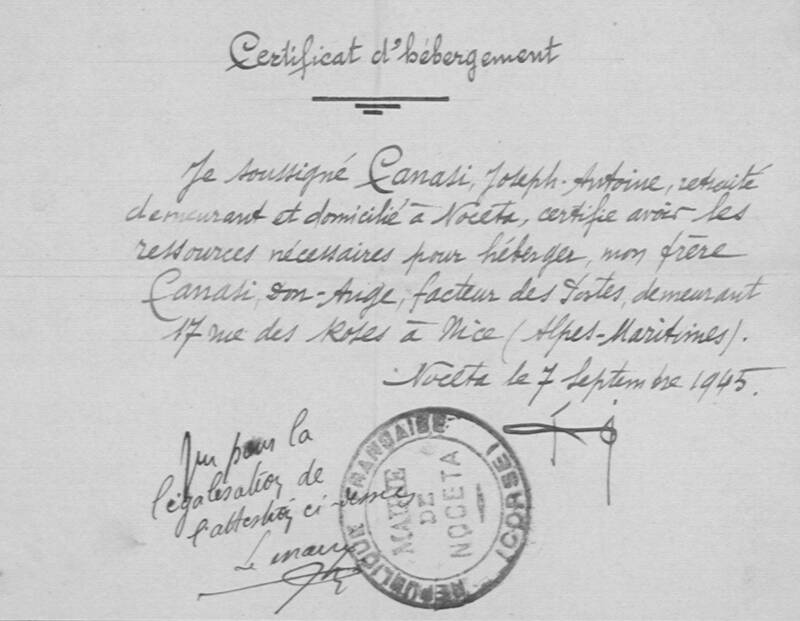 Certificat d'hébergement
Je soussigné Canasi, Joseph-Antoine, retraité
demeurant et domicilié à Noceta, certifie avoir les
ressources nécessaires pour héberger, mon frère
Canasi, Don-Ange, facteur des Postes, demeurant
17 rue des Roses à Nice (Alpes-Maritimes).
Noceta le 7 Septembre 1945.
Vu pour la
légalisation de
l'attestation ci-dessus
Le maire
REPUBLIQUE FRANÇAISE
MAIRIE
DE
NOCETA
(CORSE)